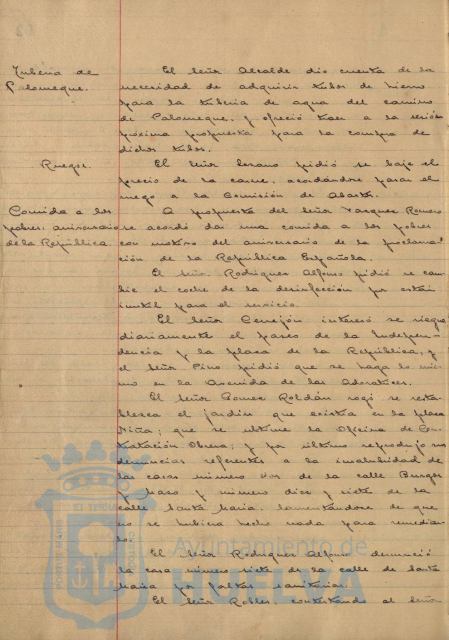 Tubería de
Palomeque.
El Señor Alcalde dio cuenta de la
necesidad de adquirir tubos de hierro
para la tubería de agua del camino
de Palomeque, y ofreció traer a la sesión
próxima propuesta para la compra de
dichos tubos.
Ruegos.
El Señor Lozano pidió se baje el
precio de la carne, acordándose pasar el
ruego a la Comisión de Abastos.
Comida a los
pobres, aniversario
de la República.
A propuesta del Señor Vazquez Romero
se acordó dar una comida a los pobres
con motivo del aniversario de la proclama-
ción de la República Española.
El Señor Rodriguez Alfonso pidió se cam-
bie el coche de la desinfección por estar
inutil para el servicio.
El Señor Cerrejón interesó se riegue
diariamente el paseo de la Indepen-
dencia y la plaza de la República, y
el Señor Pino pidió que se haga lo mis-
mo en la Avenida de las Adoratrices.
El Señor Gomez Roldán rogó se resta-
blezca el jardín que existía en la plaza
Niña; que se ultime la Oficina de Con-
tratación Obrera; y por último reprodujo sus
denuncias referentes a la insalubridad de
las casas número dos de la calle Burgos
y Mazo y número diez y siete de la
calle Santa María, lamentándose de que
no se hubiera hecho nada para remediar-
lo.
El Señor Rodriguez Alfonso denunció
la casa número siete de la calle de Santa
María por faltas sanitarias.
El Señor Robles, contestando al Señor
Ayuntamiento de
HUELVA